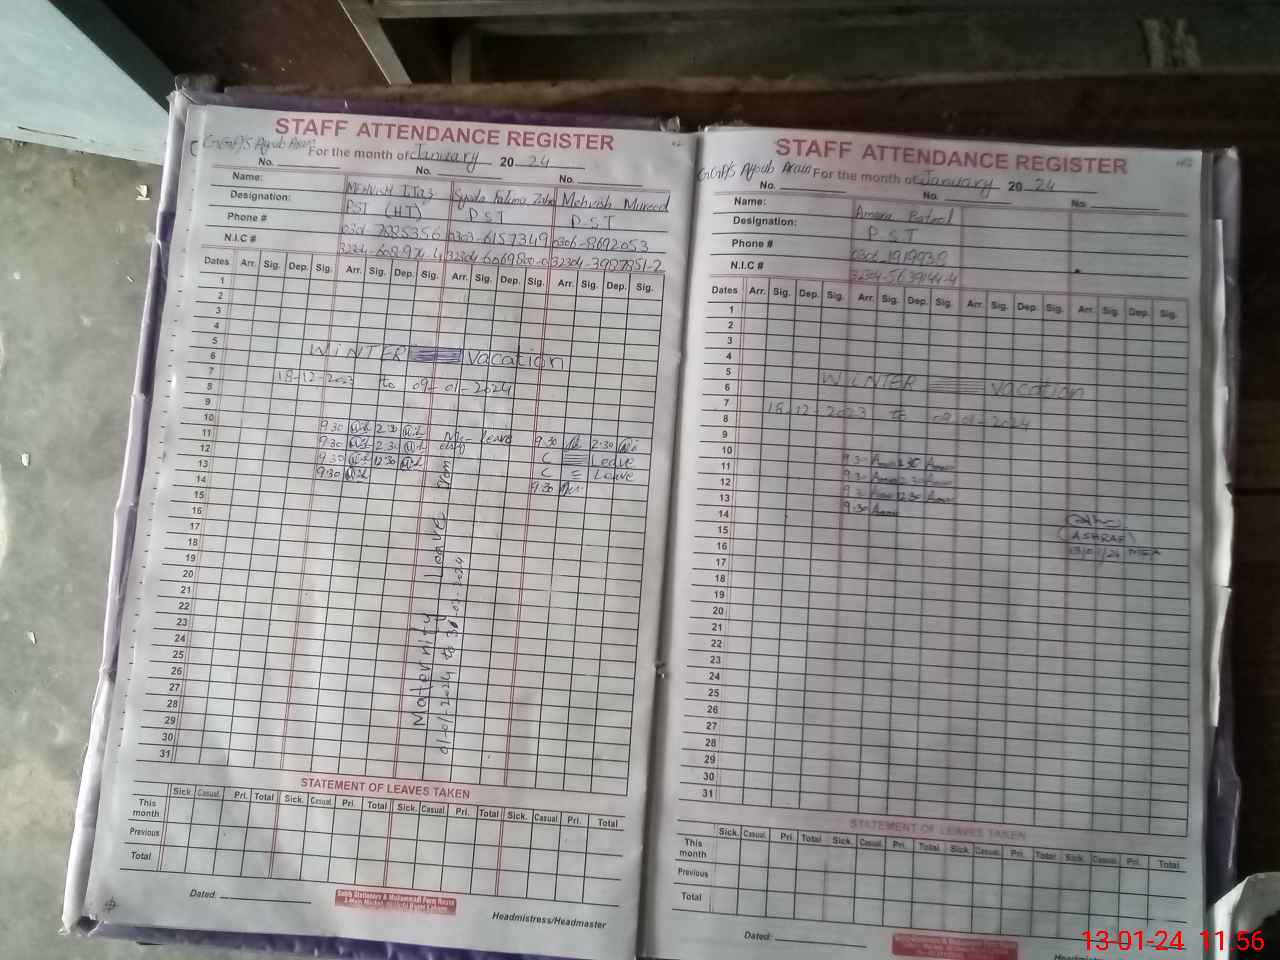 STAFF ATTENDANCE REGISTER
GGP/S Ayoub Arain For the month of January 20 24
No. No. No.
Name: MEHVISH IJAZ Syeda Fatima Zahra Mehvish Mureed
Designation: PST (HT) PST PST
Phone # 0303-6157349 0306-8692053
N.I.C # 32304-6069800-0 32304-3987851-2
Dates Arr. Sig. Dep. Sig. Arr. Sig. Dep. Sig. Arr. Sig. Dep. Sig. Arr. Sig. Dep. Sig.
1
2
3
4
5
6 WINTER vacation
7
8 18-12-2023 to 09-01-2024
9
10
11 9:30 2:30 leave 9:30 2:30
12 9:30 2:30 C Leave
13 9:30 12:30 C Leave
14 9:30 9:30
15
16
17
18
19
20
21
22
23
24
25
26
27
28
29
30
31
Maternity Leave from
01-01-2024 to
STATEMENT OF LEAVES TAKEN
Sick. Casual. Pri. Total Sick. Casual. Pri. Total Sick. Casual. Pri. Total Sick. Casual. Pri. Total
This month
Previous
Total
Dated:
Headmistress/Headmaster
STAFF ATTENDANCE REGISTER
GGP/S Ayoub Arain For the month of January 20 24
No. No. No.
Name: Amara Batool
Designation: PST
Phone # 0306-1919939
N.I.C # 32304-5639144-4
Dates Arr. Sig. Dep. Sig. Arr. Sig. Dep. Sig. Arr. Sig. Dep. Sig. Arr. Sig. Dep. Sig.
1
2
3
4
5
6 WINTER vacation
7
8 18-12-2023 to 09-01-2024
9
10
11 9:30 2:30
12 9:30 2:30
13 9:30 12:30
14 9:30
15
16 ASHRAF
17 13/01/24 MEA
18
19
20
21
22
23
24
25
26
27
28
29
30
31
STATEMENT OF LEAVES TAKEN
Sick. Casual. Pri. Total Sick. Casual. Pri. Total Sick. Casual. Pri. Total Sick. Casual. Pri. Total
This month
Previous
Total
Dated:
13-01-24 11.56